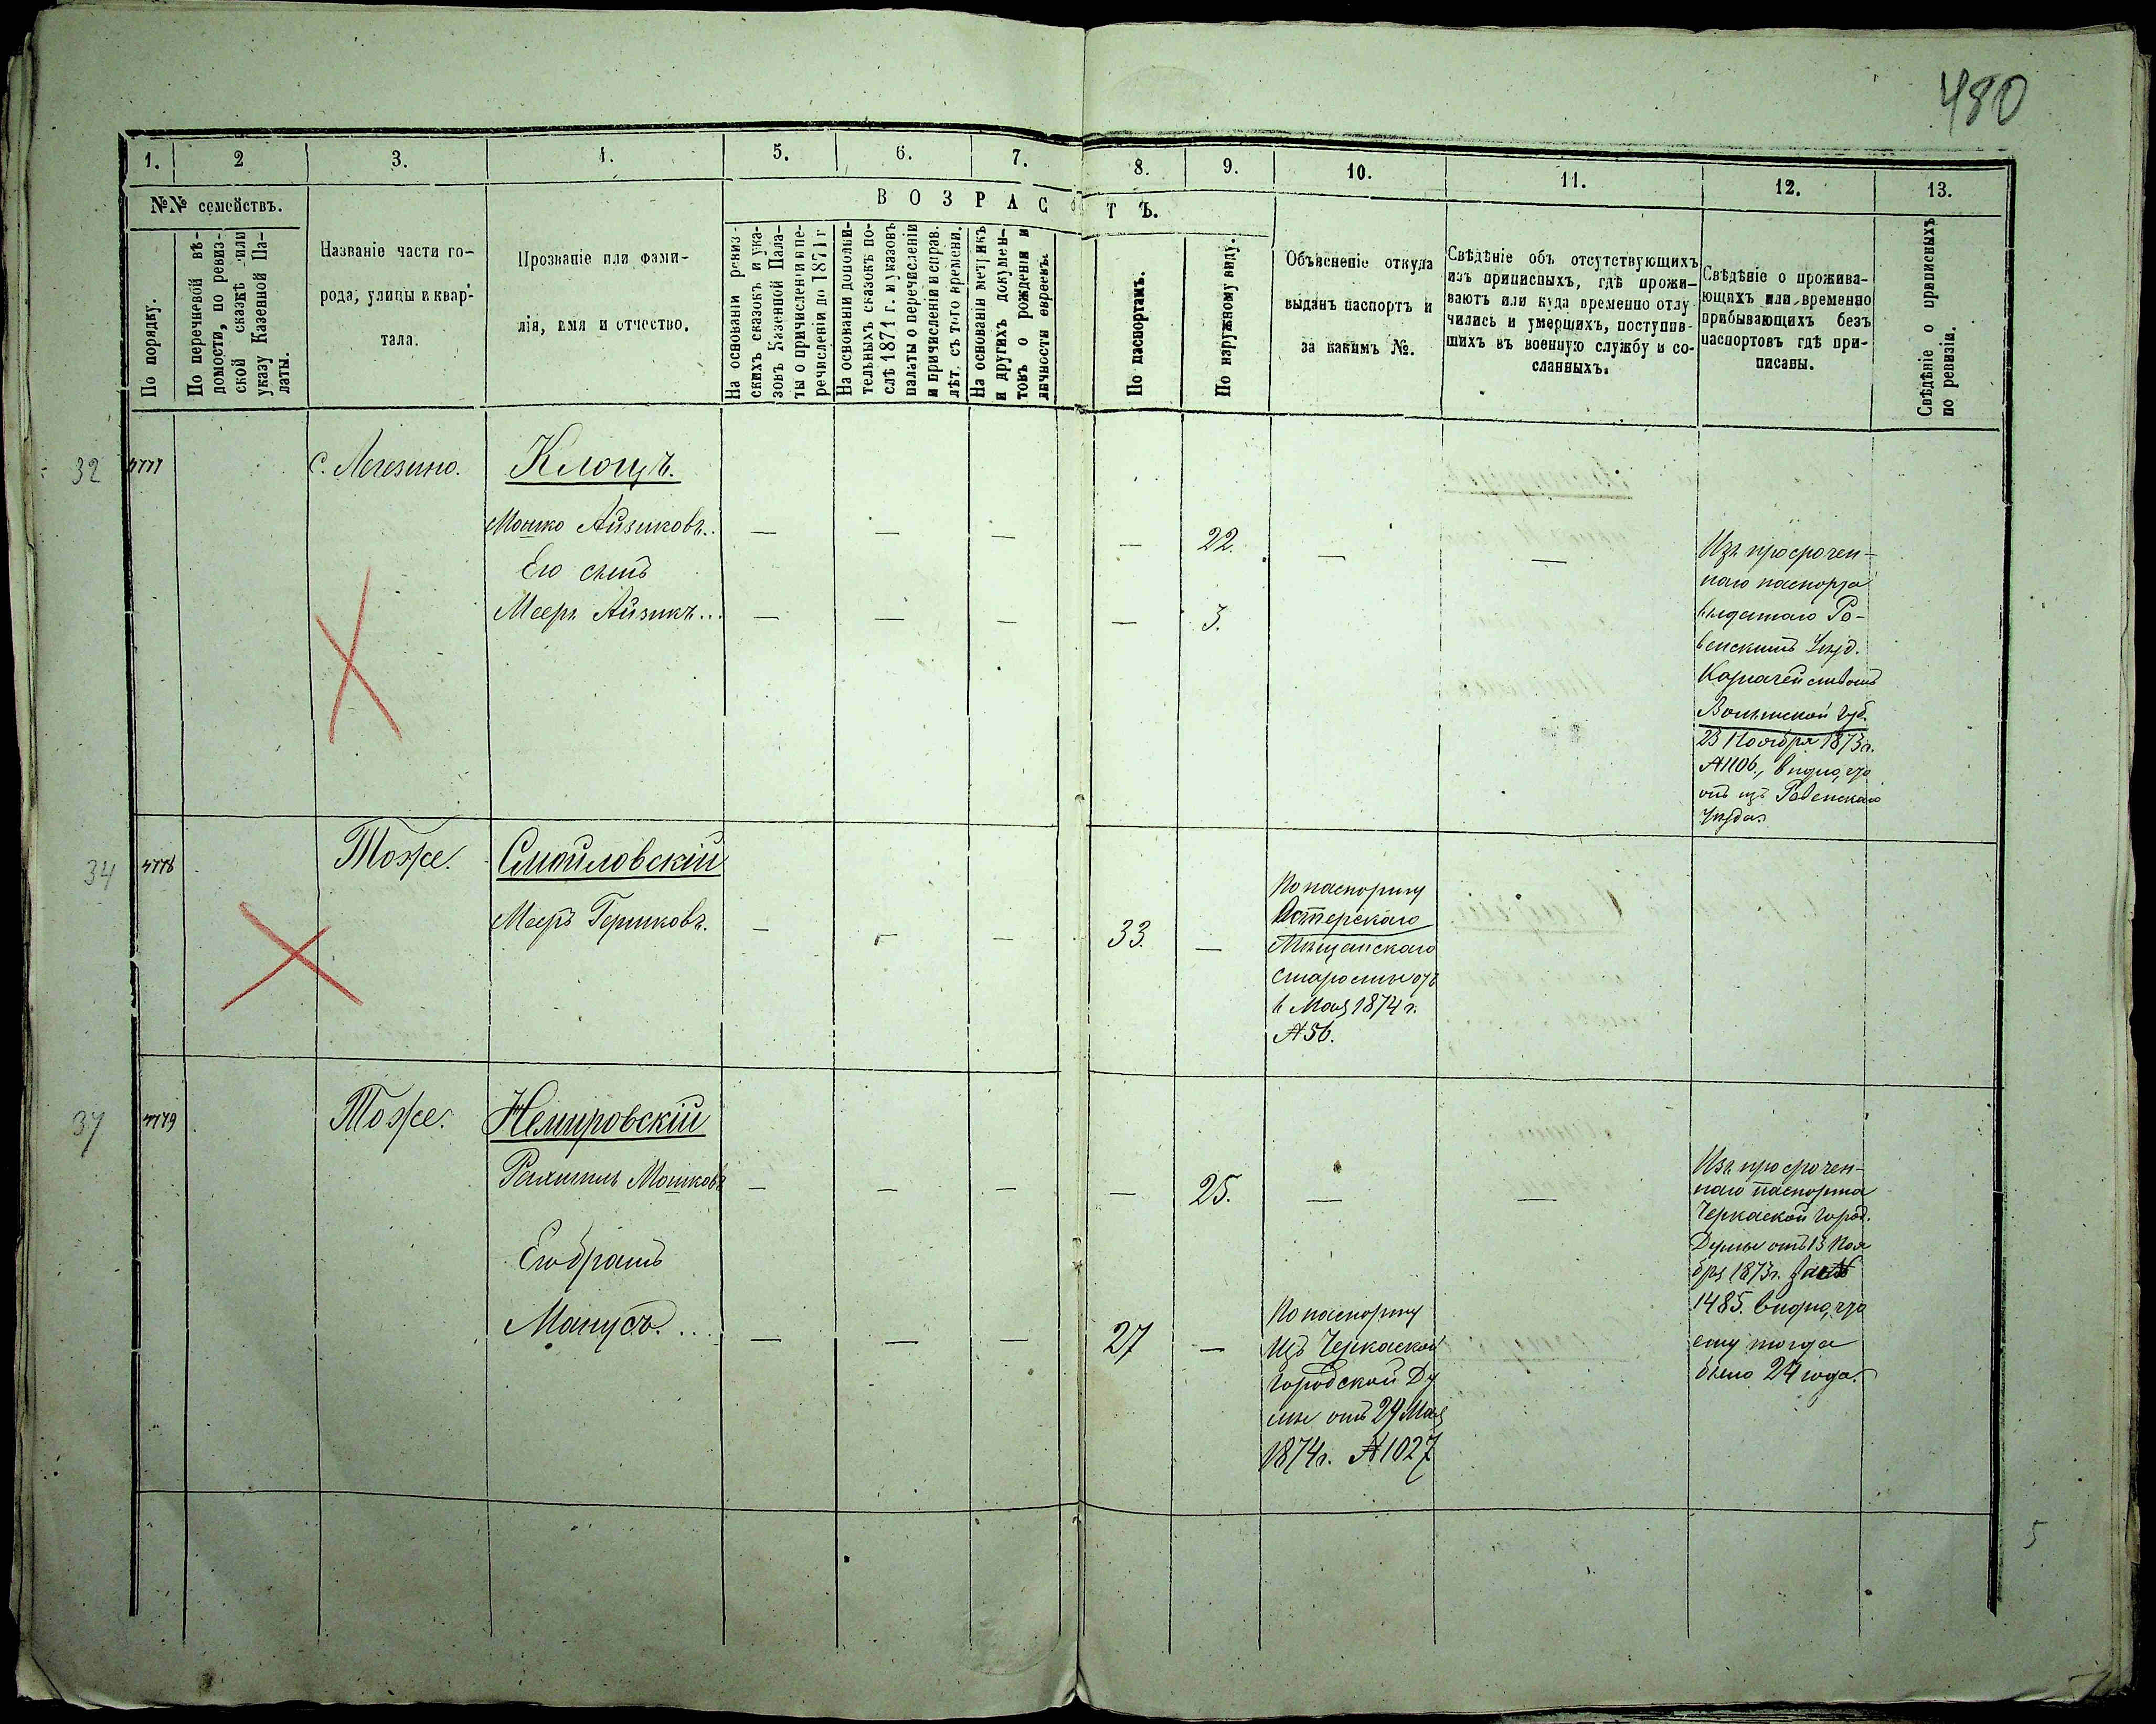 480
1. 2 3. 4. 5. 6. 7. 8. 9. 10. 11. 12. 13.
№№ семействъ.
По порядку.
По перечневой вѣ-
домости, по ревиз-
ской сказкѣ или
указу Казенной Па-
латы.
Названіе части го-
рода, улицы и квар-
тала.
Прозваніе или фами-
лія, имя и отчество.
ВОЗРАСТЪ.
На основаніи ревиз-
скихъ сказокъ и ука-
зовъ Казенной Пала-
ты о причисленіи и пе-
речисленіи до 1871 г
На основаніи дополни-
тельныхъ сказокъ по-
слѣ 1871 г. и указовъ
палаты о перечисленіи
и причисленіи и справ.
лѣт. съ того времени.
На основаніи метрикъ
и другихъ докумен-
товъ о рожденіи и
личности евреевъ.
По паспортамъ.
По наружному виду.
Объясненіе откуда
выданъ паспортъ и
за какимъ №.
Свѣдѣніе объ отсутствующихъ
изъ приписныхъ, гдѣ прожи-
ваютъ или куда временно отлу
чились и умершихъ, поступив-
шихъ въ военную службу и со-
сланныхъ.
Свѣдѣніе о прожива-
ющихъ или временно
прибывающихъ безъ
паспортовъ гдѣ при-
писаны.
Свѣдѣніе о приписныхъ
по ревизіи.
32
с. Легезино. Клоцъ.
Мошко Айзиковъ. — — — — 22. — —
Его сынъ
Мееръ Айзикъ... — — — — 3.
Изъ просрочен-
наго паспорта
выданнаго Ро-
венскимъ Уѣзд.
Казначействомъ
Волынской губ.
23 Ноября 1873 г.
№1106, видно, что
онъ изъ Ровенскаго
Уѣзда.
34
Тоже. Смойловскій
Мееръ Гершковъ. — — — 33. —
По паспорту
Остерскаго
Мѣщанскаго
Старосты отъ
Мая 1874 г.
№ 56.
37
Тоже. Немировскій
Рахмиль Мошковъ — — — — 25. — —
Изъ просрочен-
наго паспорта
Черкаской город.
Думы отъ 13 Ноя
бря 1873 г. за №
1485. видно, что
ему тогда
было 24 года.
Его братъ
Манусъ... — — — 27 —
По паспорту
Изъ Черкаской
Городской Ду
мы отъ 29 Мая
1874 г. №1027
5